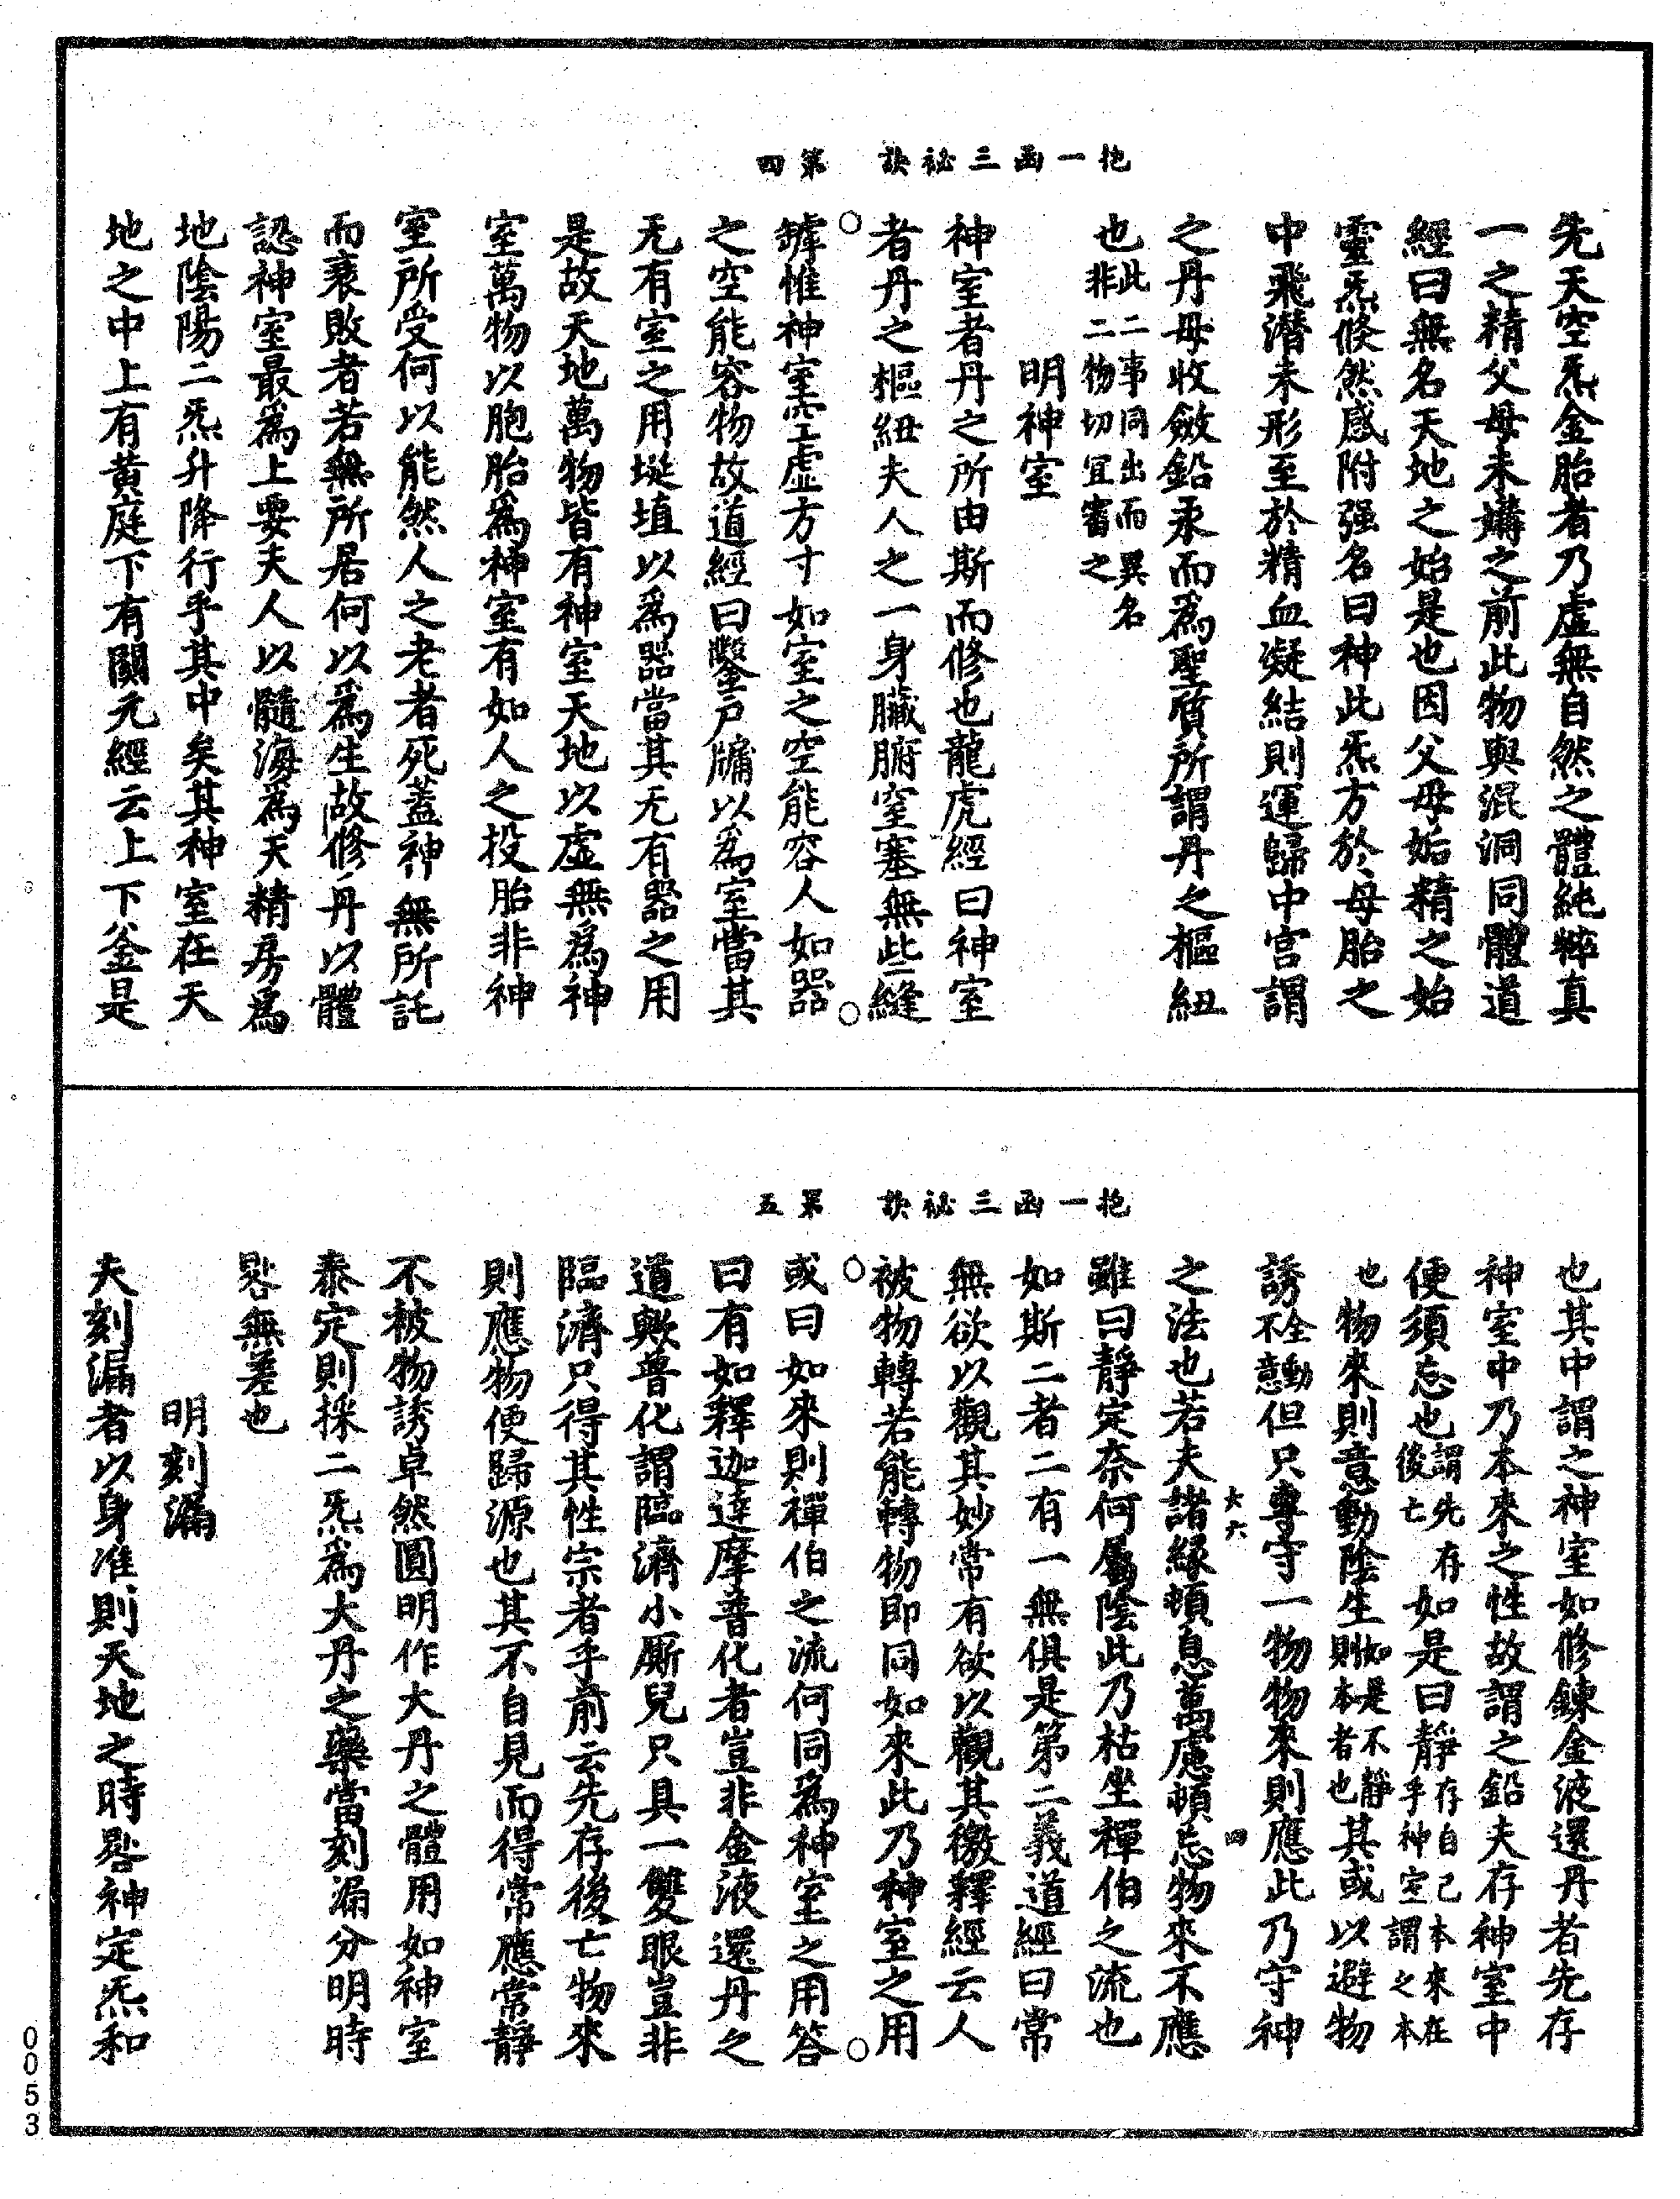 抱一函三祕訣　第四
先天空炁金胎者乃虛無自然之體純粹真
一之精父母未媾之前此物與混洞同體道
經曰無名天地之始是也因父母媾精之始
靈炁倏然感附强名曰神此炁方於母胎之
中飛潛未形至於精血凝結則運歸中宮謂
之丹母收斂鉛汞而爲聖質所謂丹之樞紐
也此二事同出而異名非二物切宜審之
明神室
神室者丹之所由斯而修也龍虎經曰神室
者丹之樞紐夫人之一身臟腑窒塞無些縫
罅惟神室空虛方寸如室之空能容人如器
之空能容物故道經曰鑿戶牖以爲室當其
无有室之用埏埴以爲器當其无有器之用
是故天地萬物皆有神室天地以虛無爲神
室萬物以胞胎爲神室有如人之投胎非神
室所受何以能然人之老者死蓋神無所託
而衰敗者若無所居何以爲生故修丹以體
認神室最爲上要夫人以髓海爲天精房爲
地陰陽二炁升降行乎其中矣其神室在天
地之中上有黄庭下有關元經云上下釜是
抱一函三祕訣　第五
也其中謂之神室如修鍊金液還丹者先存
神室中乃本來之性故謂之鉛夫存神室中
便須忘也謂先存後亡如是曰靜存自己本來在乎神室謂之本
也物來則意動陰生如是不靜則本者也其或以避物
誘全動不意但只專守一物物來則應此乃守神
之法也若夫諸緣頓息萬慮頓忘物來不應
雖曰靜定奈何屬陰此乃枯坐禪伯之流也
如斯二者二有一無俱是第二義道經曰常
無欲以觀其妙常有欲以觀其徼釋經云人
被物轉若能轉物即同如來此乃神室之用
或曰如來則禪伯之流何同爲神室之用答
曰有如釋迦達摩普化者豈非金液還丹之
道歟普化謂臨濟小廝兒只具一雙眼豈非
臨濟只得其性宗者乎前云先存後亡物來
則應物便歸源也其不自見而得常應常靜
不被物誘卓然圓明作大丹之體用如神室
泰定則採二炁爲大丹之藥當刻漏分明時
晷無差也
明刻漏
夫刻漏者以身准則天地之時晷神定炁和
大六
四
0053